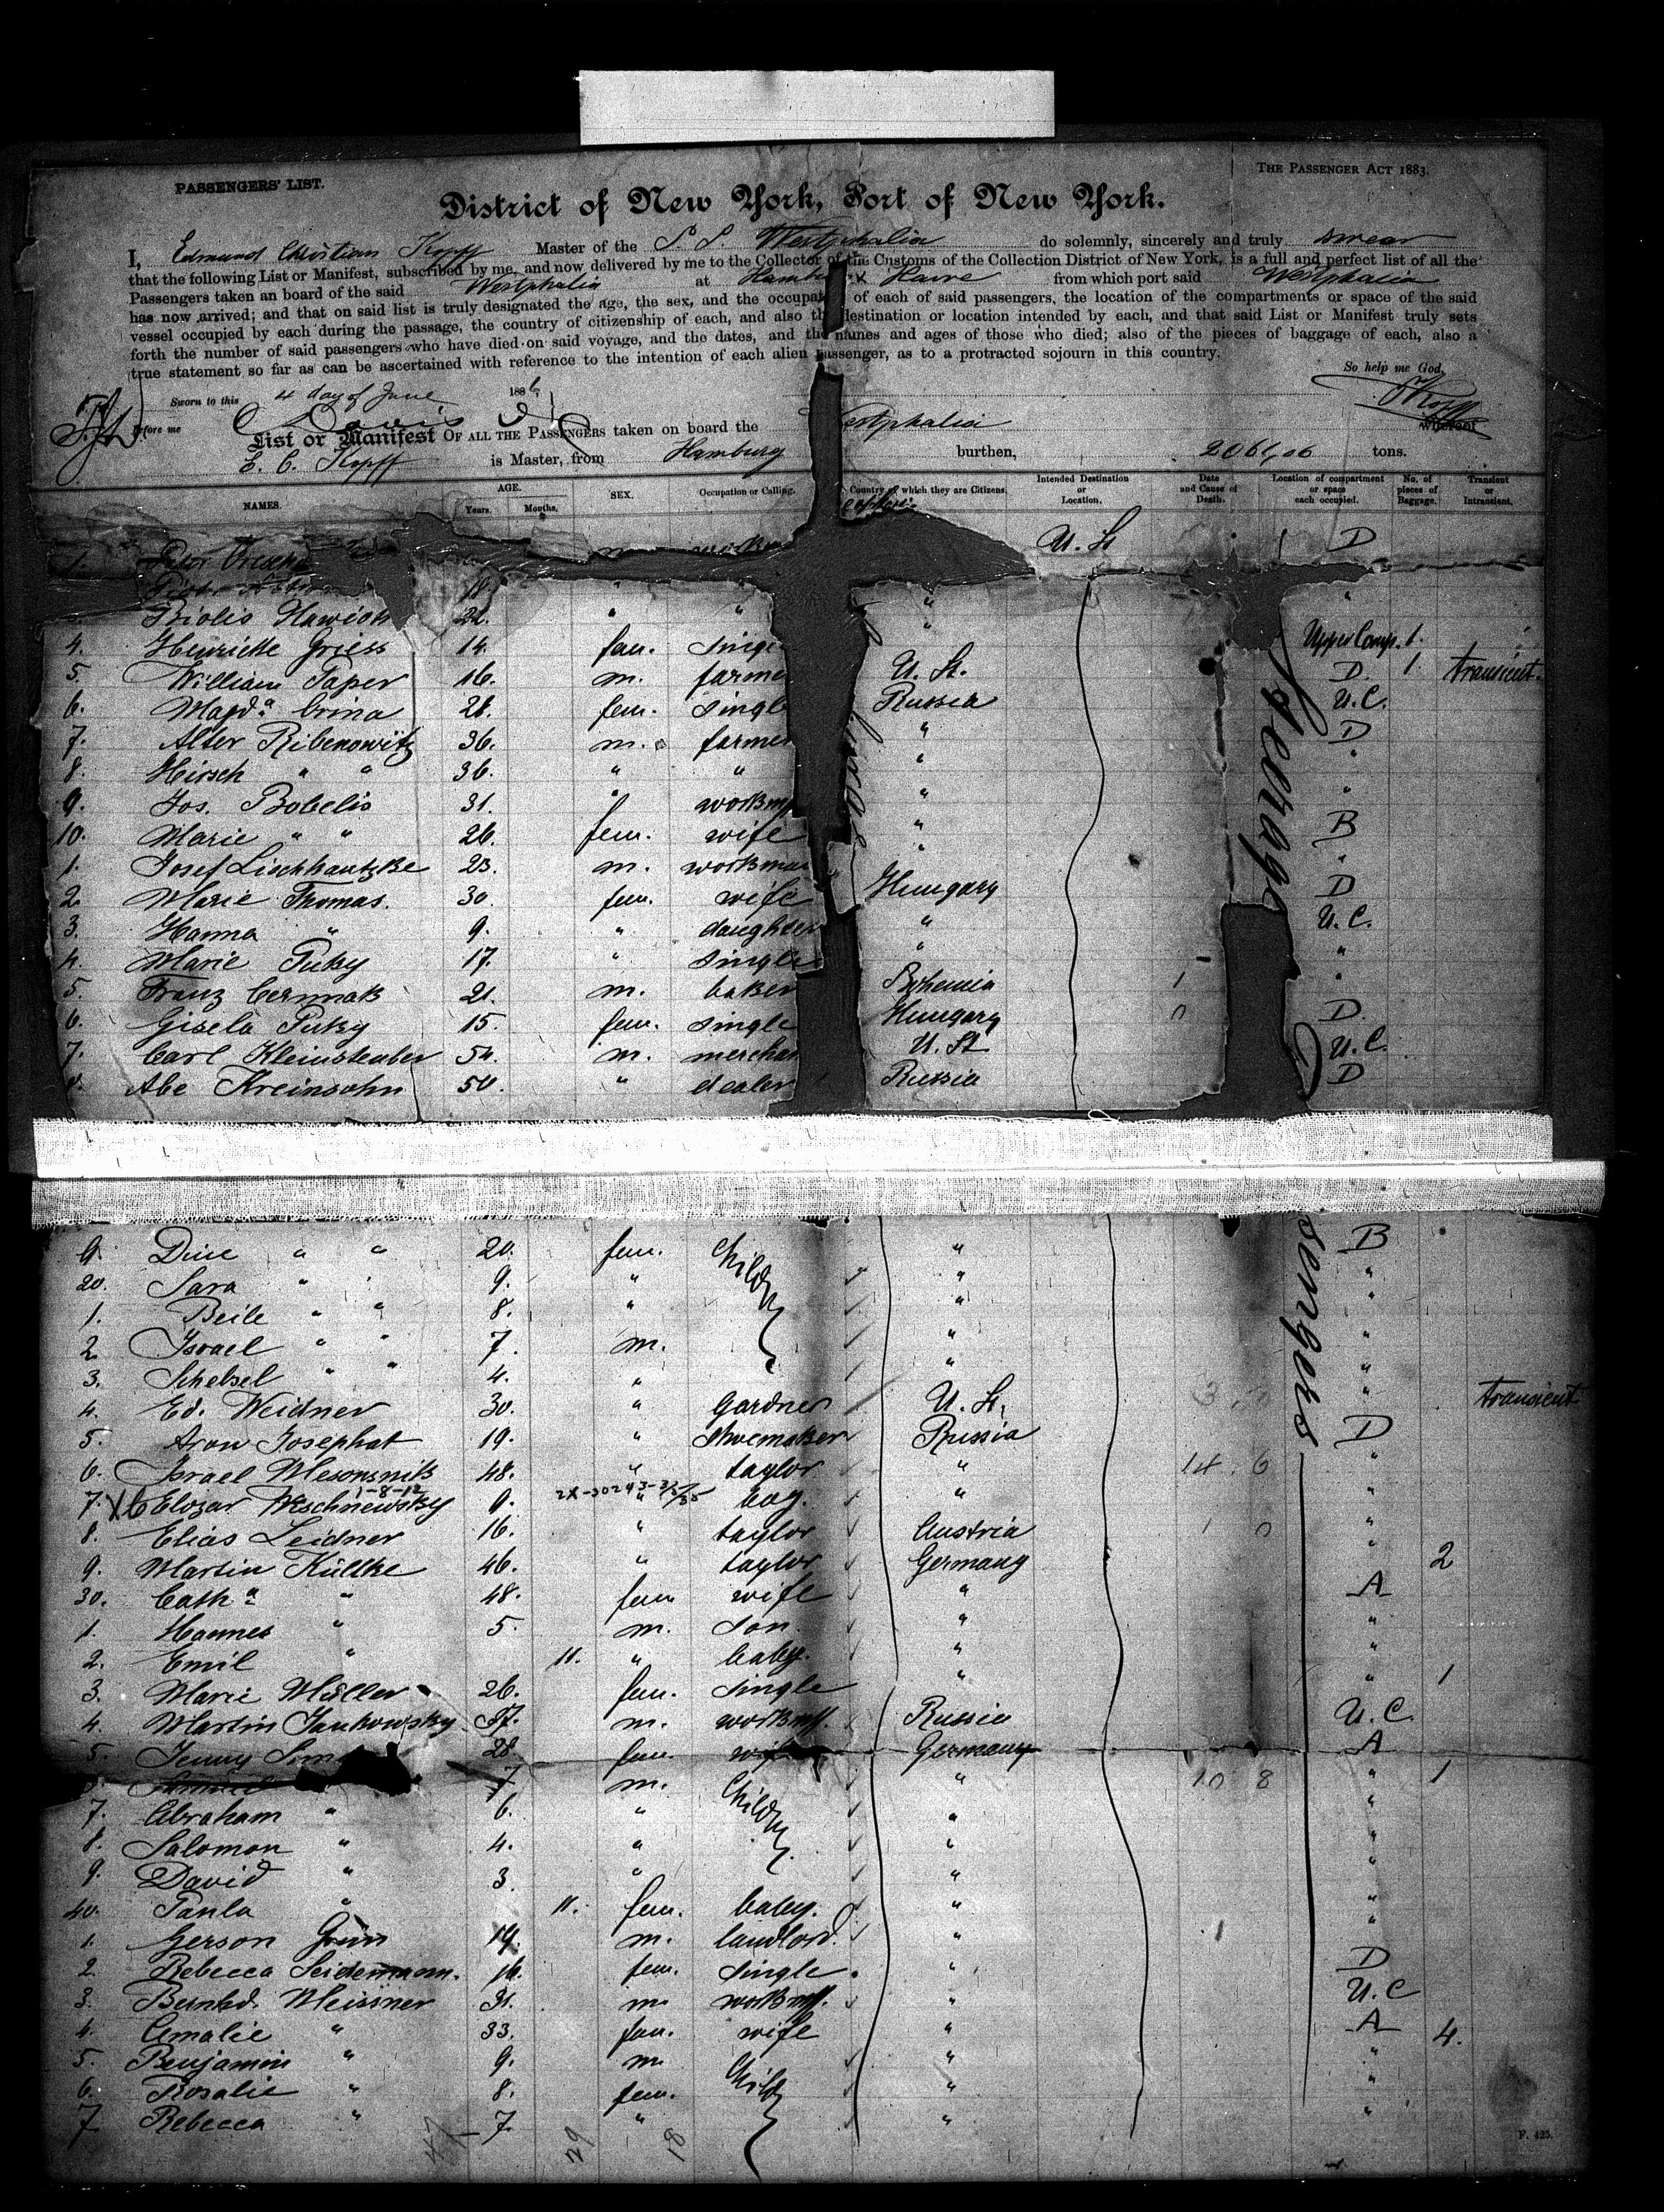 PASSENGERS' LIST.
THE PASSENGER ACT 1883.
District of New York, Port of New York.
I, Edmund Christian Kopff Master of the S. S. Westphalia do solemnly, sincerely and truly swear
that the following List or Manifest, subscribed by me, and now delivered by me to the Collector of the Customs of the Collection District of New York, is a full and perfect list of all the
Passengers taken an board of the said Westphalia at Hamburg & Havre from which port said Westphalia
has now arrived; and that on said list is truly designated the age, the sex, and the occupat of each of said passengers, the location of the compartments or space of the said
vessel occupied by each during the passage, the country of citizenship of each, and also the destination or location intended by each, and that said List or Manifest truly sets
forth the number of said passengers who have died on said voyage, and the dates, and the names and ages of those who died; also of the pieces of baggage of each, also a
true statement so far as can be ascertained with reference to the intention of each alien passenger, as to a protracted sojourn in this country.
So help me God,
Sworn to this 4 day of June 1886
Kopff
before me
List or Manifest OF ALL THE PASSENGERS taken on board the estphalia whereof
E. C. Kopff is Master, from Hamburg burthen, tons.
NAMES. AGE. Years. Months. SEX. Occupation or Calling. Country of which they are Citizens. Intended Destination or Location. Date and Cause of Death. Location of compartment or space each occupied. No. of pieces of Baggage. Transient or Intransient.
1. m U. St D
18. " "
Hawick 22. " " "
4. Henriette Griess 14. fem. single Upper Comp. 1.
5. William Taper 16. m. farme U. St. D. 1. transient.
6. Magda. Crina 21. fem. singl Russia U.C.
7. Alter Ribenowitz 36. m. farmer " D
8. Hirsch " " 36. " " " "
9. Jos. Bobelis 31. " workm " "
10. Marie " " 26. fem. wife " B
1. Josef Lischkautzke 23. m. workman " "
2. Marie Thomas. 30. fem. wife Hungary D
3. Hanna " 9. " daughter " U.C.
4. Marie Puky 17. " single " "
5. Franz Cermak 21. m. baker Bohemia 1 "
6. Gisela Puky 15. fem. single Hungary 0 D.
7. Carl Kleinsteuber 54. m. merchan U. St U.C.
8. Abe Kreinsohn 50. " dealer Russia D
Steerage
9. Dine " " 20. fem. Childr " B
20. Sara " " 9. " " "
1. Beile " " 8. " " "
2. Israel " " 7. m. " "
3. Schebsel " " 4. " " "
4. Ed. Weidner 30. " gardner U. St. " transient
5. Aron Josephat 19. " shoemaker Russia D
6. Israel 48. " taylor " 14. 6 "
1-8-12 2X-30293-
7. Elozar Wischnewsky 9. " boy. " "
8. Elias Leidner 16. " taylor Austria 1 0 "
9. Martin Kültke 46. " taylor Germany " 2
30. Cath a " 48. fem wife " A
1. Hannes " 5. m. son. " "
2. Emil " 11. " baby. " "
3. Marie Müller 26. fem. single " " 1
4. Martin Jankowsky 37. m. workmn. Russia U.C.
5. Jenny 28. fem. wif Germany A
6. 7 m. Childr " 10 8 " 1
7. Abraham " 6. " " "
8. Salomon " 4. " " "
9. David " 3. " " "
40. Paula " 11. fem. baby. " "
1. Gerson Grün 19. m. landlord. " "
2. Rebecca Seidemann. 16. fem. single. " D
3. Bernhd. Meissner 31. m. workmn. " U.C
4. Amalie " 33. fem. wife " A 4.
5. Benjamin " 9. m. Childr " "
6. Rosalie " 8. fem. " "
7 Rebecca " 7. " " "
47 29 18
F. 425.